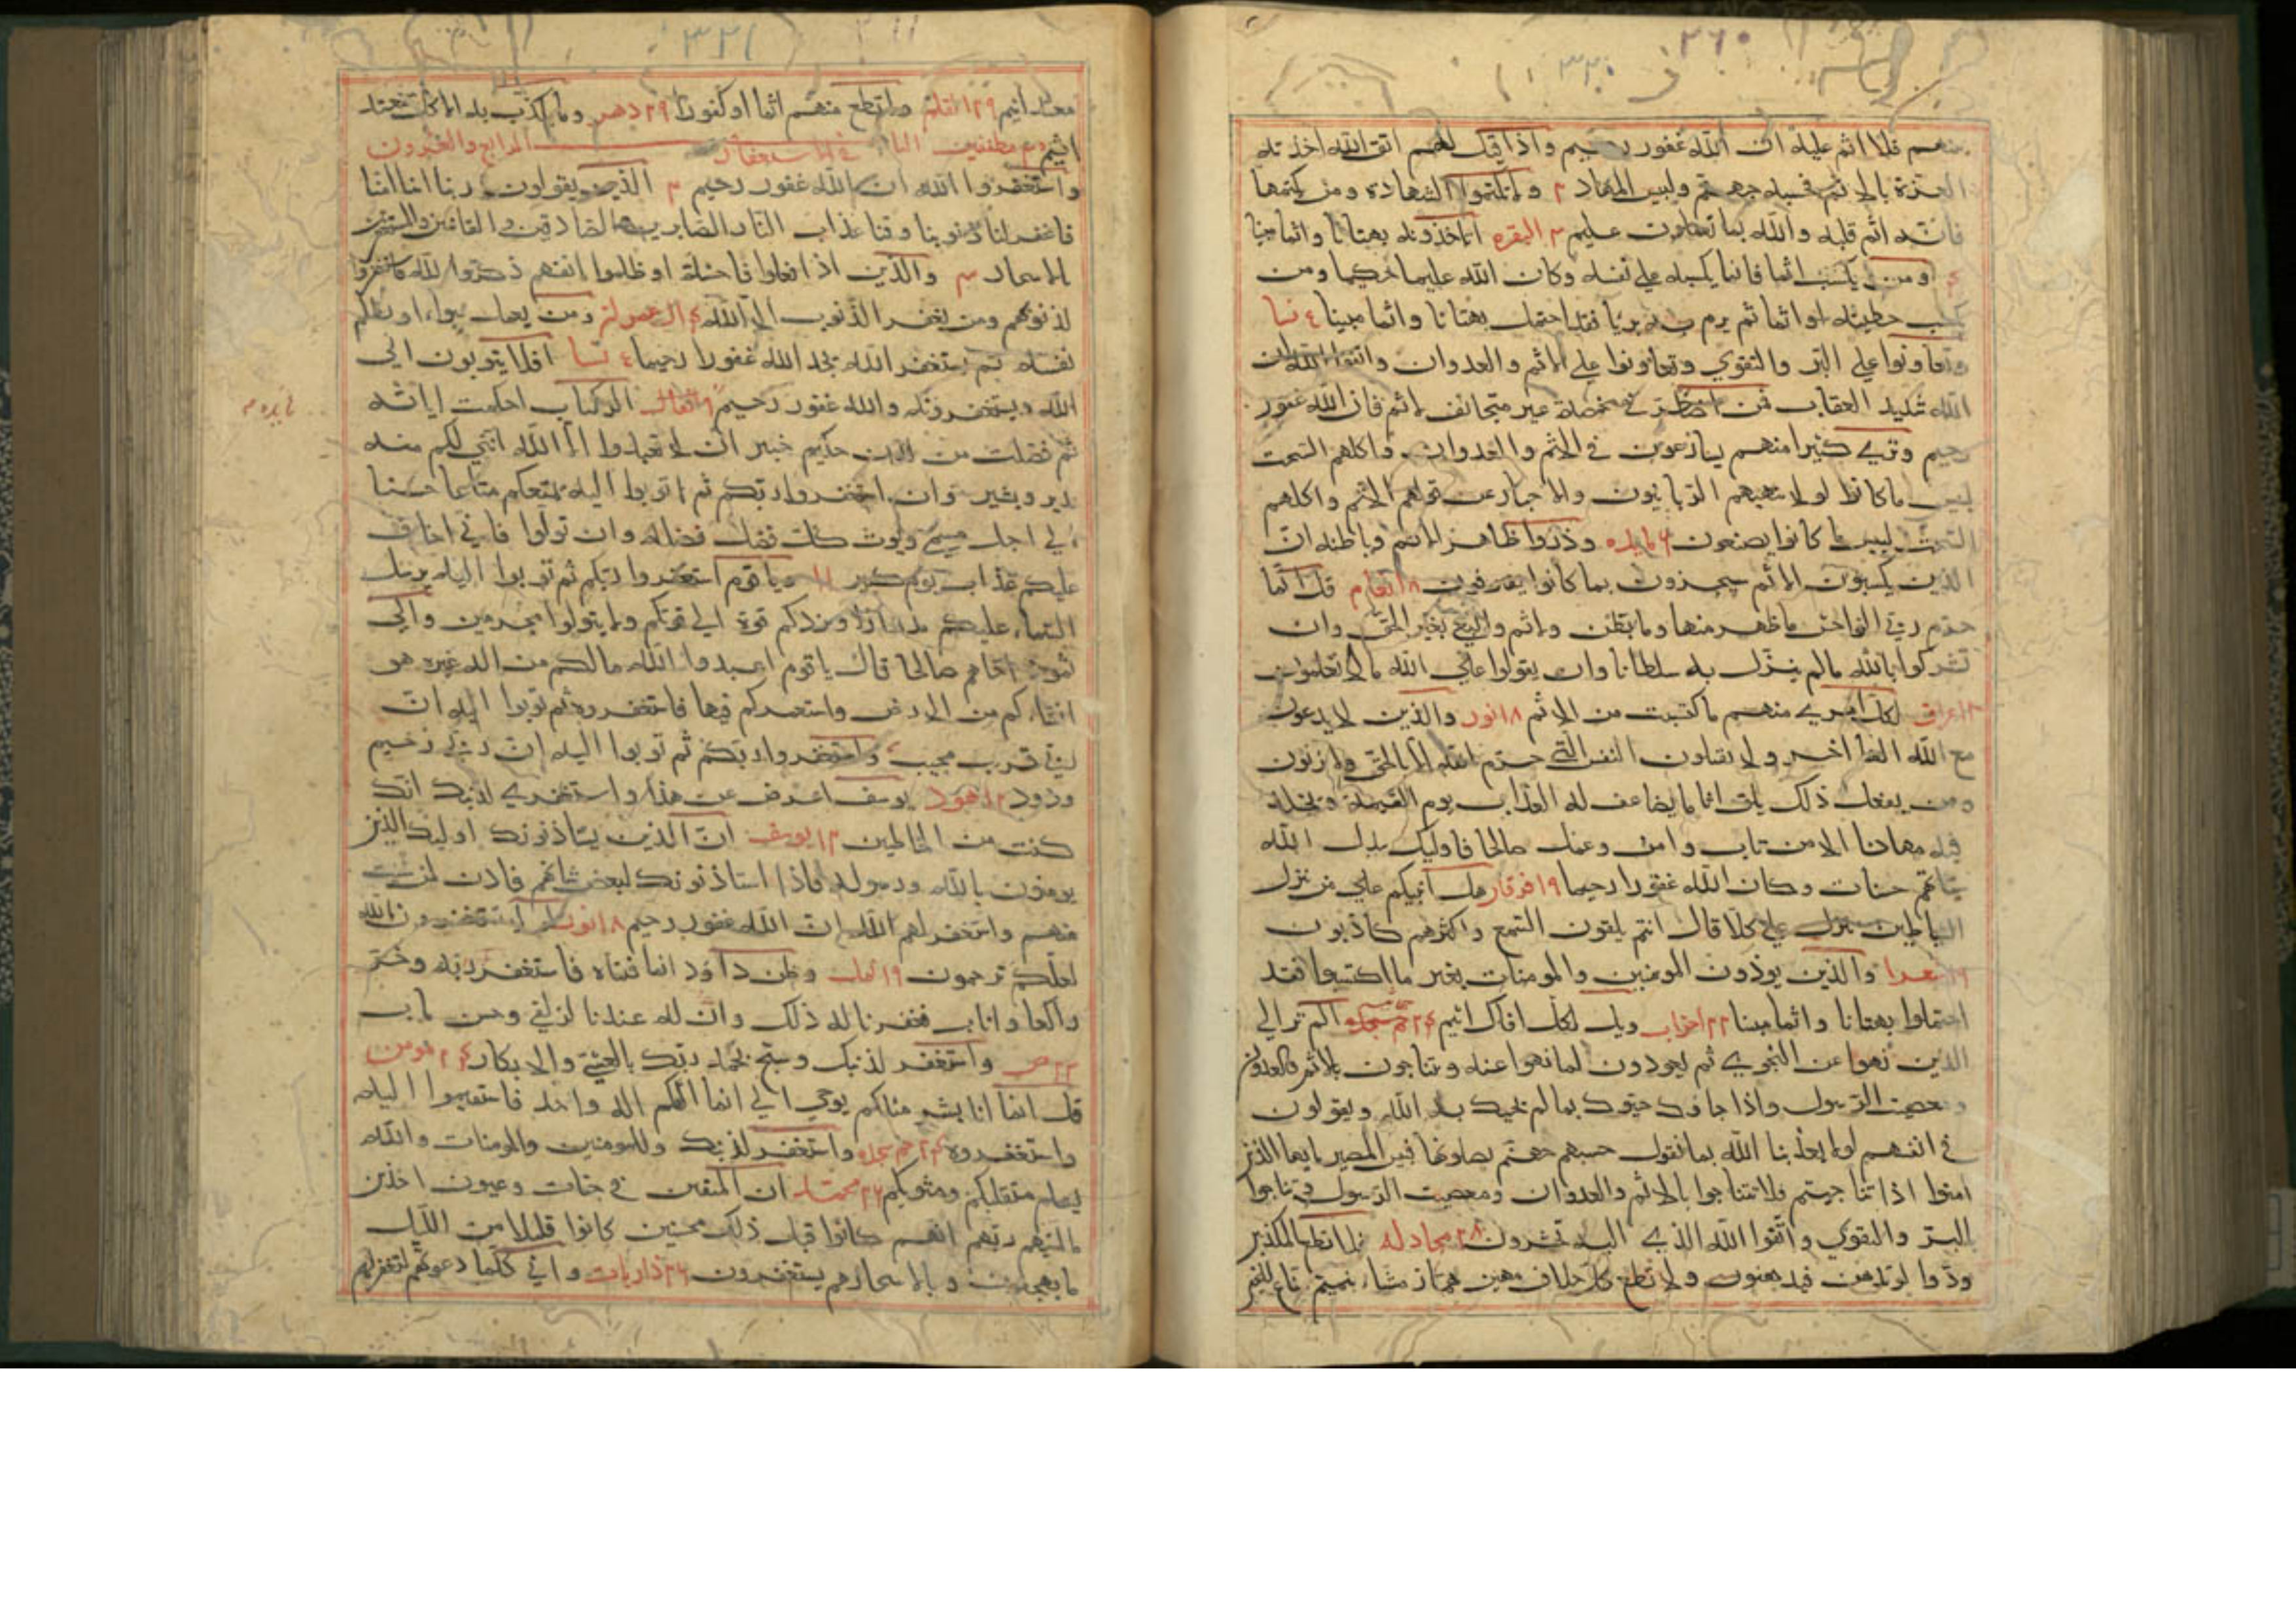 ٢٦٠
٣٣٠
منهم فلا اثم عليه ان الله غفور رحيم واذا قيل لهم اتق الله اخذته
العزة بالاثم فحسبه جهنم ولبيس المهاد ٢ ولا تكتموا الشهادة ومن يكتمها
فانه اثم قلبه والله بما تعملون عليم ٣ البقره اتاخذونه بهتانا واثما مبينا
٤ ومن يكسب اثما فانما يكسبه علي نفسه وكان الله عليما حكيما ومن
يكسب خطيئه او اثما ثم يرم به بريا فقد احتمل بهتانا واثما مبينا ٤ نسا
وتعاونوا علي البر والتقوي وتعاونوا علي الاثم والعدوان واتقوا الله ان
الله شديد العقاب فمن اضطر في مخمصة غير متجانف لاثم فان الله غفور
رحيم وتري كثيرا منهم يسارعون في الاثم والعدوان واكلهم السحت
لبيس ما كانوا لولا ينهيهم الربانيون والاحبار عن قولهم الاثم واكلهم
السحت لبيس ما كانوا يصنعون ٦ مايده وذروا ظاهر الاثم وباطنه ان
الذين يكسبون الاثم سيجزون بما كانوا يقترفون ٨ انعام قل انما
حرم ربي الفواحش ما ظهر منها وما بطن والاثم والبغي بغير الحق وان
تشركوا بالله مالم ينزل به سلطانا وان يقولوا علي الله ما لا تعلمون
٨ اعراف لكل امري منهم ما كتسبت من الاثم ١٨ نور والذين لا يدعون
مع الله الها اخر ولا يقتلون النفس التي حرم الله الا بالحق ولا يزنون
ومن يفعل ذلك يلق اثاما يضاعف له العذاب يوم القيمة ويخلد
فيه مهانا الا من تاب وامن وعمل صالحا فاوليك يبدل الله
سياتهم حسنات وكان الله غفورا رحيما ١٩ فرقان هل انبيكم علي من تنزل
الشياطين تنزل علي كل افاك اثيم يلقون السمع واكثرهم كاذبون
١٩ شعرا والذين يوذون المومنين والمومنات بغير ما اكتسبوا فقد
احتملوا بهتانا واثما مبينا ٢٢ احزاب ويل لكل افاك اثيم الم تر الي
الذين نهوا عن النجوي ثم يعودون لما نهوا عنه ويتناجون بالاثم والعدوان
ومعصيت الرسول واذا جاوك حيوك بما لم يحيك به الله ويقولون
في انفسهم لولا يعذبنا الله بما نقول حسبهم جهنم يصلونها فبيس المصير يايها الذين
امنوا اذا تناجيتم فلا تتناجوا بالاثم والعدوان ومعصيت الرسول وتناجوا
بالبر والتقوي واتقوا الله الذي اليه تحشرون ٢٨ مجادله فلا تطع المكذبين
ودوا لو تدهن فيدهنون ولا تطع كل حلاف مهين هماز مشاء بنميم مناع للخير
٣٣١
معتد اثيم ٢٩ القلم ولا تطع منهم اثما او كفورا ٢٩ دهر وما يكذب به الا كل معتد
اثيم ٣٠ مطففين الباب الرابع والعشرون في الاستغفار
واستغفروا الله ان الله غفور رحيم ٢ الذين يقولون ربنا اننا امنا
فاغفر لنا ذنوبنا وقنا عذاب النار الصابرين والصادقين والقانتين والمستغفرين
بالاسحار ٣ والذين اذا فعلوا فاحشة او ظلموا انفسهم ذكروا الله فاستغفروا
لذنوبهم ومن يغفر الذنوب الا الله ٤ ال عمران ومن يعمل سوءا او يظلم
نفسه ثم يستغفر الله يجد الله غفورا رحيما ٤ نسا افلا يتوبون الي
الله ويستغفرونه والله غفور رحيم ٩ انفال الر كتاب احكمت اياته
ثم فصلت من لدن حكيم خبير الا تعبدوا الا الله انني لكم منه
نذير وبشير وان استغفروا ربكم ثم توبوا اليه يمتعكم متاعا حسنا
الي اجل مسمي ويوت كل ذي فضل فضله وان تولوا فاني اخاف
عليكم عذاب يوم كبير ١١ ويا قوم استغفروا ربكم ثم توبوا اليه يرسل
السماء عليكم مدرارا ويزدكم قوة الي قوتكم ولا يتولوا مجرمين والي
ثمود اخاهم صالحا قال يا قوم اعبدوا الله مالكم من اله غيره هو
انشاءكم من الارض واستعمركم فيها فاستغفروه ثم توبوا اليه ان
ربي قريب مجيب واستغفروا ربكم ثم توبوا اليه ان ربي رحيم
ودود ١٢ هود يوسف اعرض عن هذا واستغفري لذنبك انك
كنت من الخاطين ١٢ يوسف ان الذين يستاذنونك اوليك الذين
يومنون بالله ورسوله فاذا استاذنونك لبعض شانهم فاذن لمن شيت
منهم واستغفر لهم الله ان الله غفور رحيم ١٨ نور لولا تستغفرون الله
لعلكم ترحمون ١٩ نمل وظن داود انما فتناه فاستغفر ربه وخر
راكعا واناب فغفرنا له ذلك وان له عندنا لزلفي وحسن ماب
٢٣ ص واستغفر لذنبك وسبح بحمد ربك بالعشي والابكار ٢٤ مومن
قل انما انا بشر مثلكم يوحي الي انما الهكم اله واحد فاستقيموا اليه
واستغفروه ٢٤ حم سجده واستغفر لذنبك وللمومنين والمومنات والله
يعلم متقلبكم ومثويكم ٢٦ محمد ان المتقين في جنات وعيون اخذين
ما اتيهم ربهم انهم كانوا قبل ذلك محسنين كانوا قليلا من الليل
ما يهجعون وبالاسحارهم يستغفرون ٢٦ ذاريات واني كلما دعوتهم لتغفر لهم